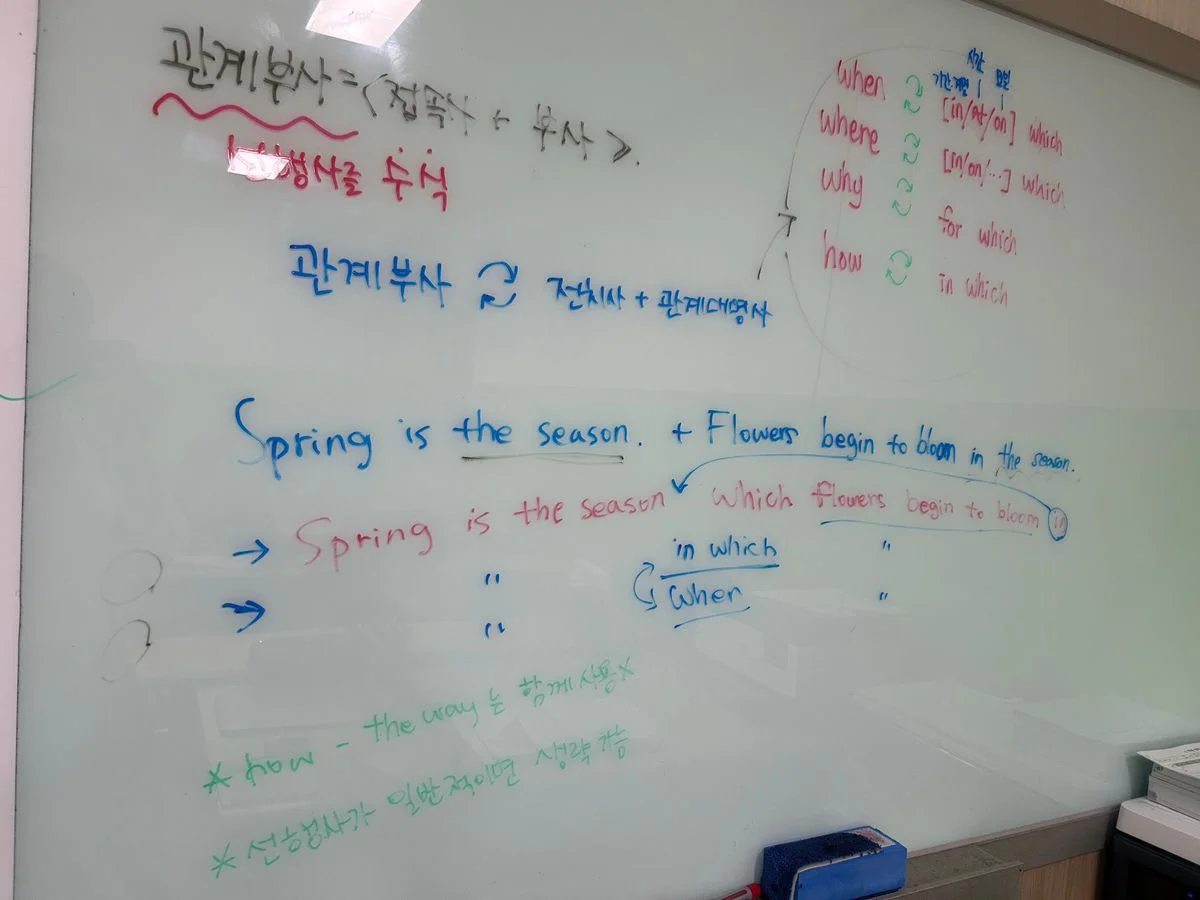 관계부사 = <접속사 + 부사>.
선행사를 수식
관계부사 전치사 + 관계대명사
시간 요일
기간 계절
when [in/at/on] which
where [in/on/...] which
why for which
how in which
Spring is the season. + Flowers begin to bloom in the season.
→ Spring is the season which flowers begin to bloom in
→ " in which "
" when "
* how - the way는 함께사용x
* 선행사가 일반적이면 생략가능